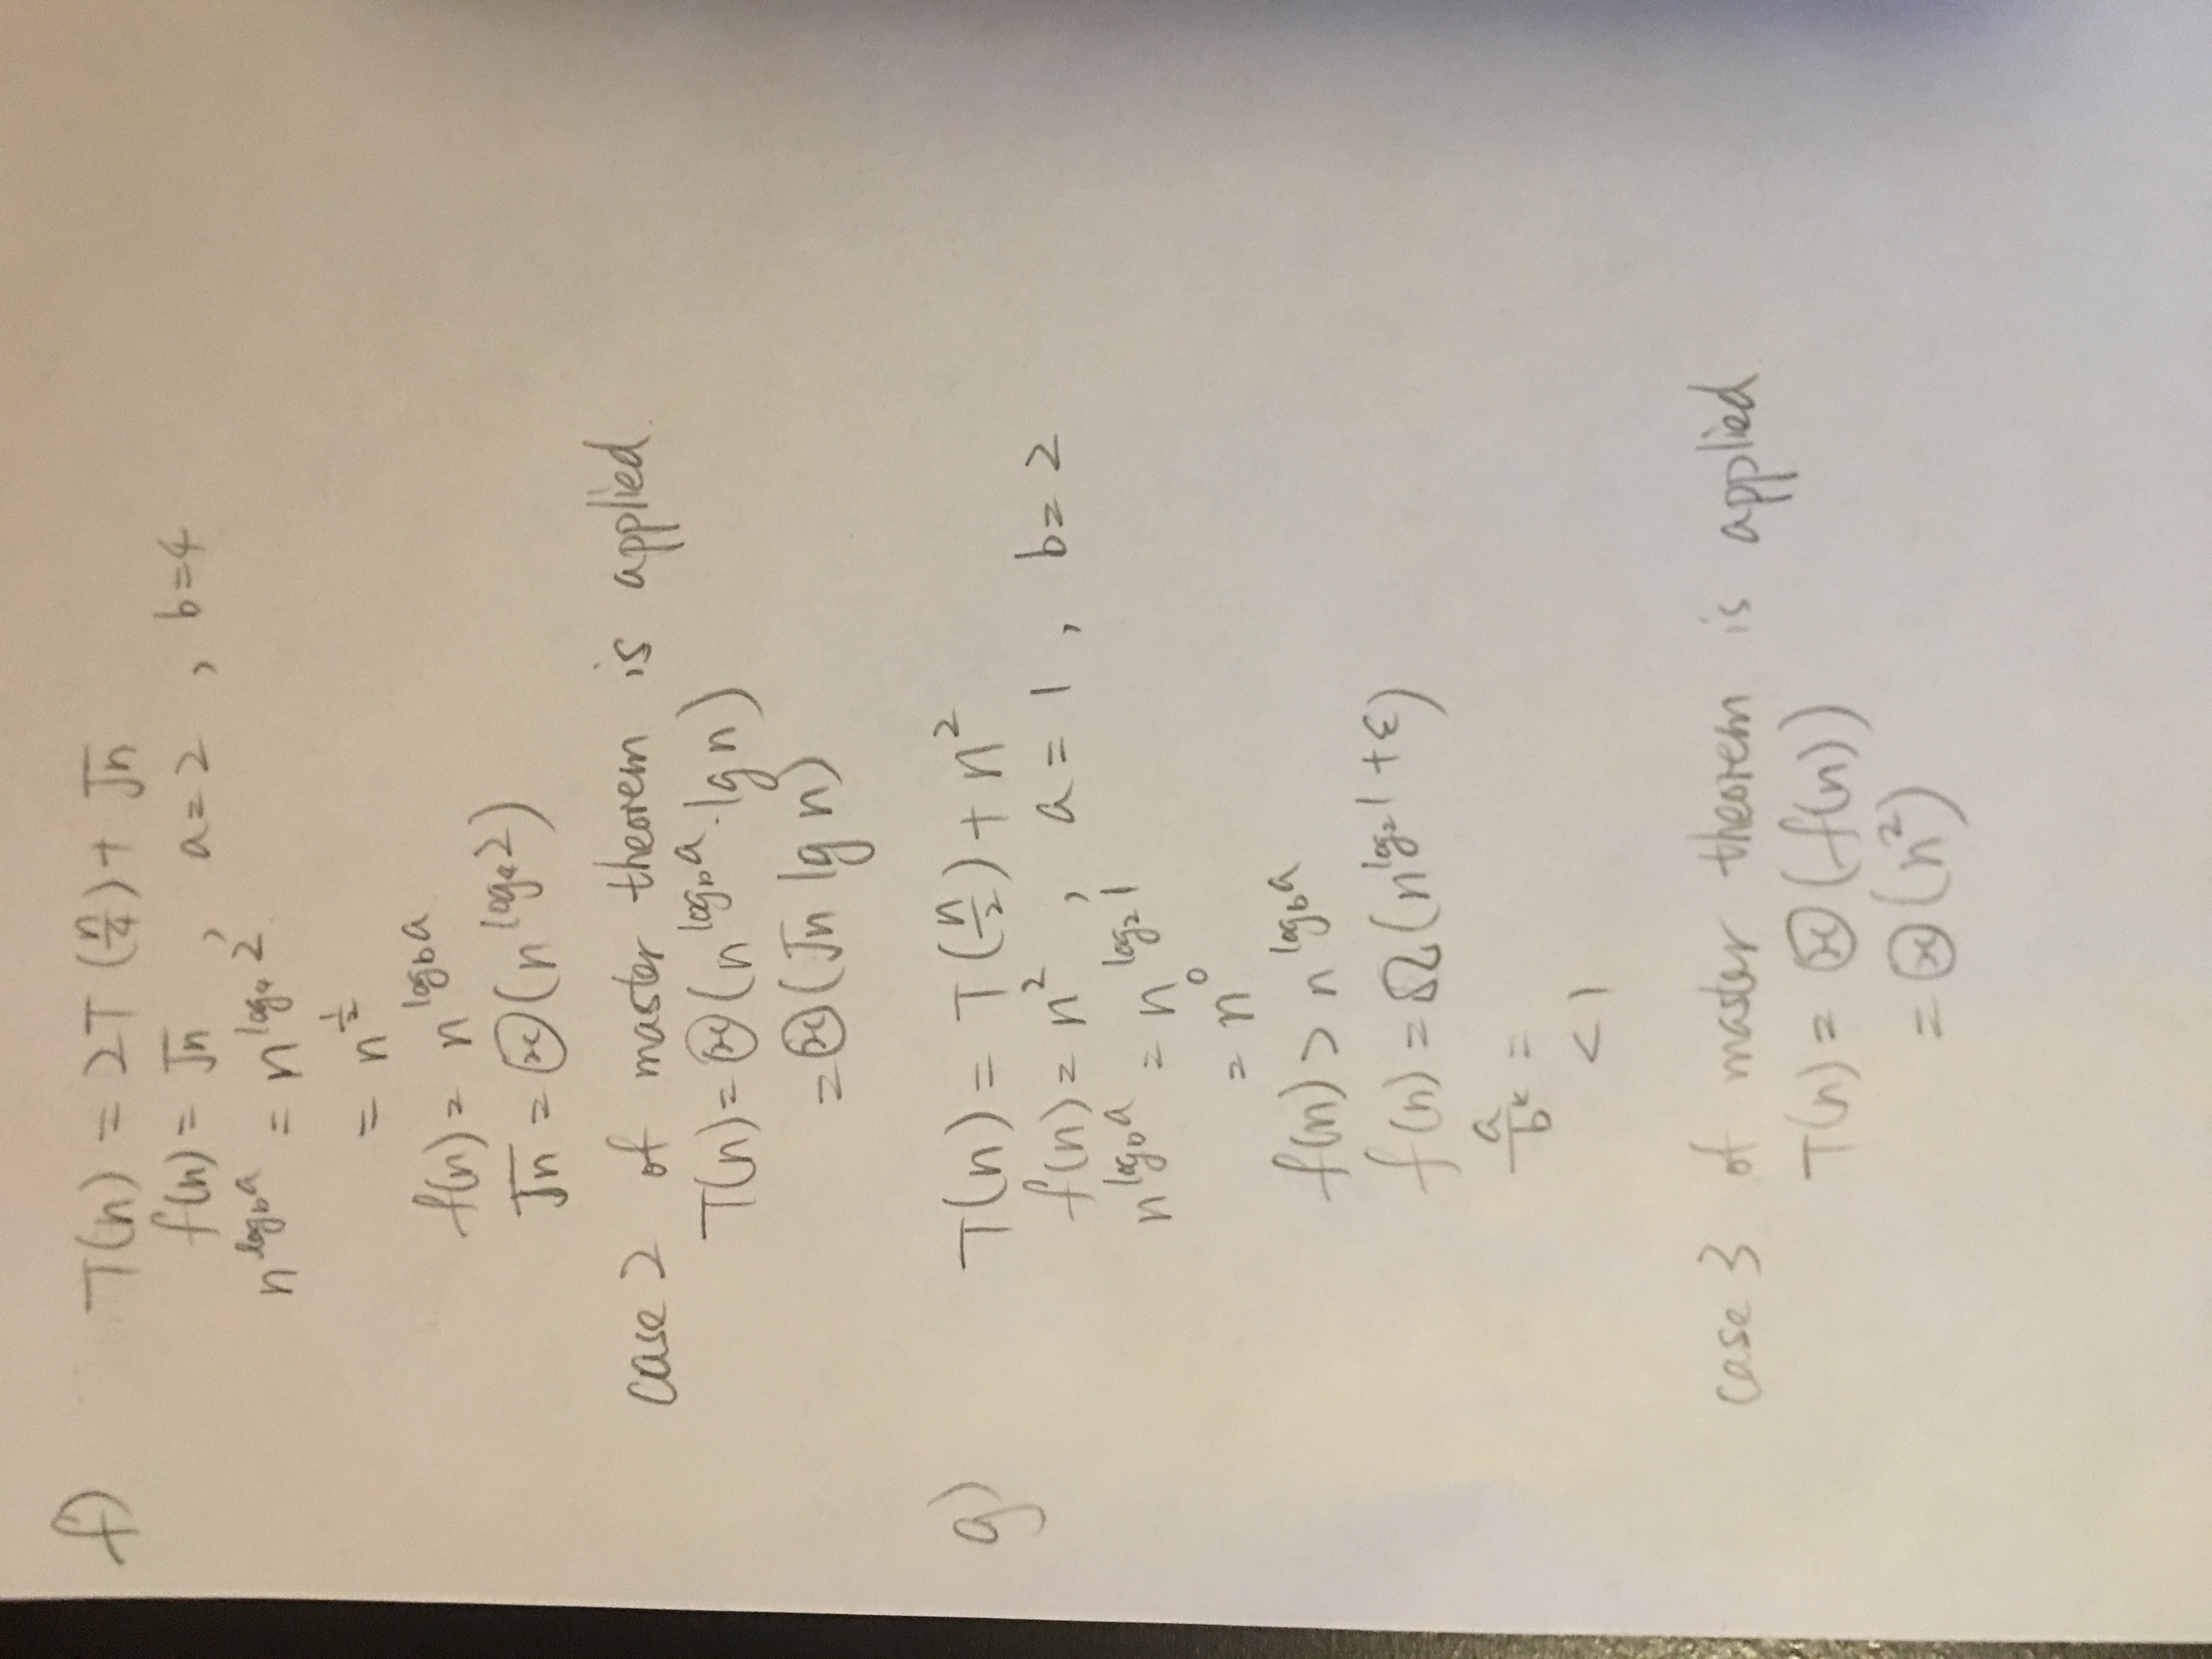 f) T(n) = 2T(n/4) + √n
f(n) = √n , a = 2 , b = 4
n^(log_b a) = n^(log_4 2)
= n^(1/2)
f(n) = n^(log_b a)
√n = Θ(n^(log_4 2))
case 2 of master theorem is applied.
T(n) = Θ(n^(log_b a) · lg n)
= Θ(√n lg n)
g) T(n) = T(n/2) + n²
f(n) = n² , a = 1 , b = 2
n^(log_b a) = n^(log_2 1)
= n^0
f(n) > n^(log_b a)
f(n) = Ω(n^(log_2 1 + ε))
a/b^k =
< 1
case 3 of master theorem is applied
T(n) = Θ(f(n))
= Θ(n²)